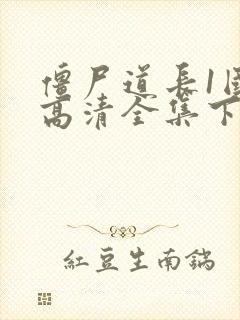 僵尸道长1国
高清全集下
紅豆生南鍴